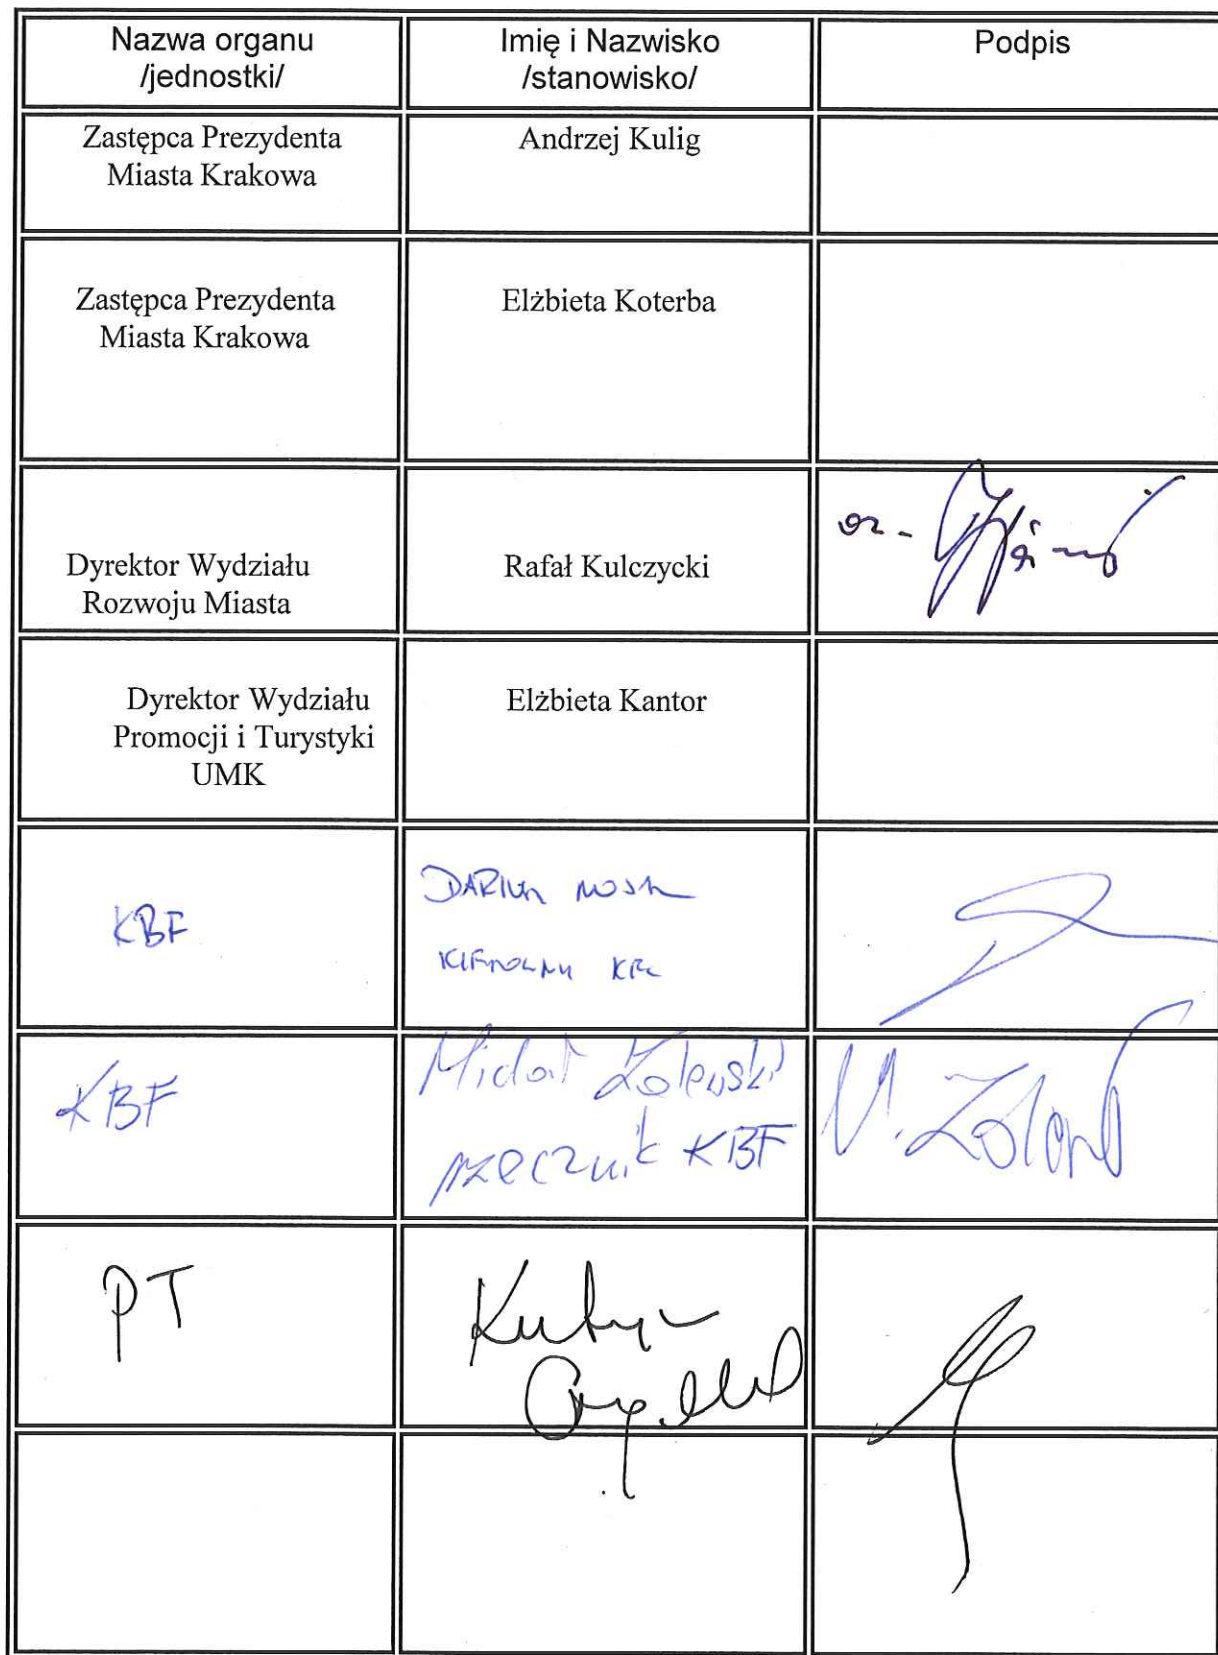 Nazwa organu
/jednostki/
Imię i Nazwisko
/stanowisko/
Podpis
Zastępca Prezydenta
Miasta Krakowa
Andrzej Kulig
Zastępca Prezydenta
Miasta Krakowa
Elżbieta Koterba
Dyrektor Wydziału
Rozwoju Miasta
Rafał Kulczycki
Dyrektor Wydziału
Promocji i Turystyki
UMK
Elżbieta Kantor
KBF
DARIUSZ
KBF
Michał Zalewski
rzecznik KBF
PT